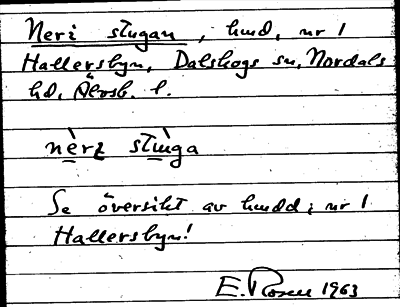 Neri stugan, hmd, nr 1
Hallersbyn, Dalskogs sn, Nordals
hd, Älvsb. l.
nèrz stùga
Se översikt av hmdd; nr 1
Hallersbyn!
E. Rosell 1963